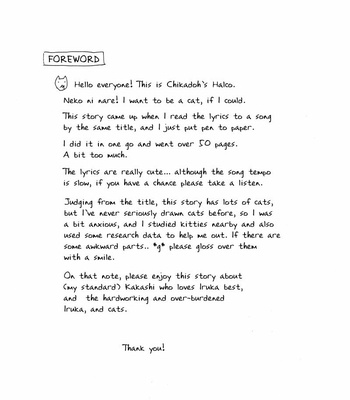 FOREWORD
Hello everyone! This is Chikadoh's Halco.
Neko ni nare! I want to be a cat, if I could.
This story came up when I read the lyrics to a song
by the same title, and I just put pen to paper.
I did it in one go and went over 50 pages.
A bit too much.
The lyrics are really cute... although the song tempo
is slow, if you have a chance please take a listen.
Judging from the title, this story has lots of cats,
but I've never seriously drawn cats before, so I was
a bit anxious, and I studied kitties nearby and also
used some research data to help me out. If there are
some awkward parts.. *g* please gloss over them
with a smile.
On that note, please enjoy this story about
(my standard) Kakashi who loves Iruka best,
and the hardworking and over-burdened
Iruka, and cats.
Thank you!